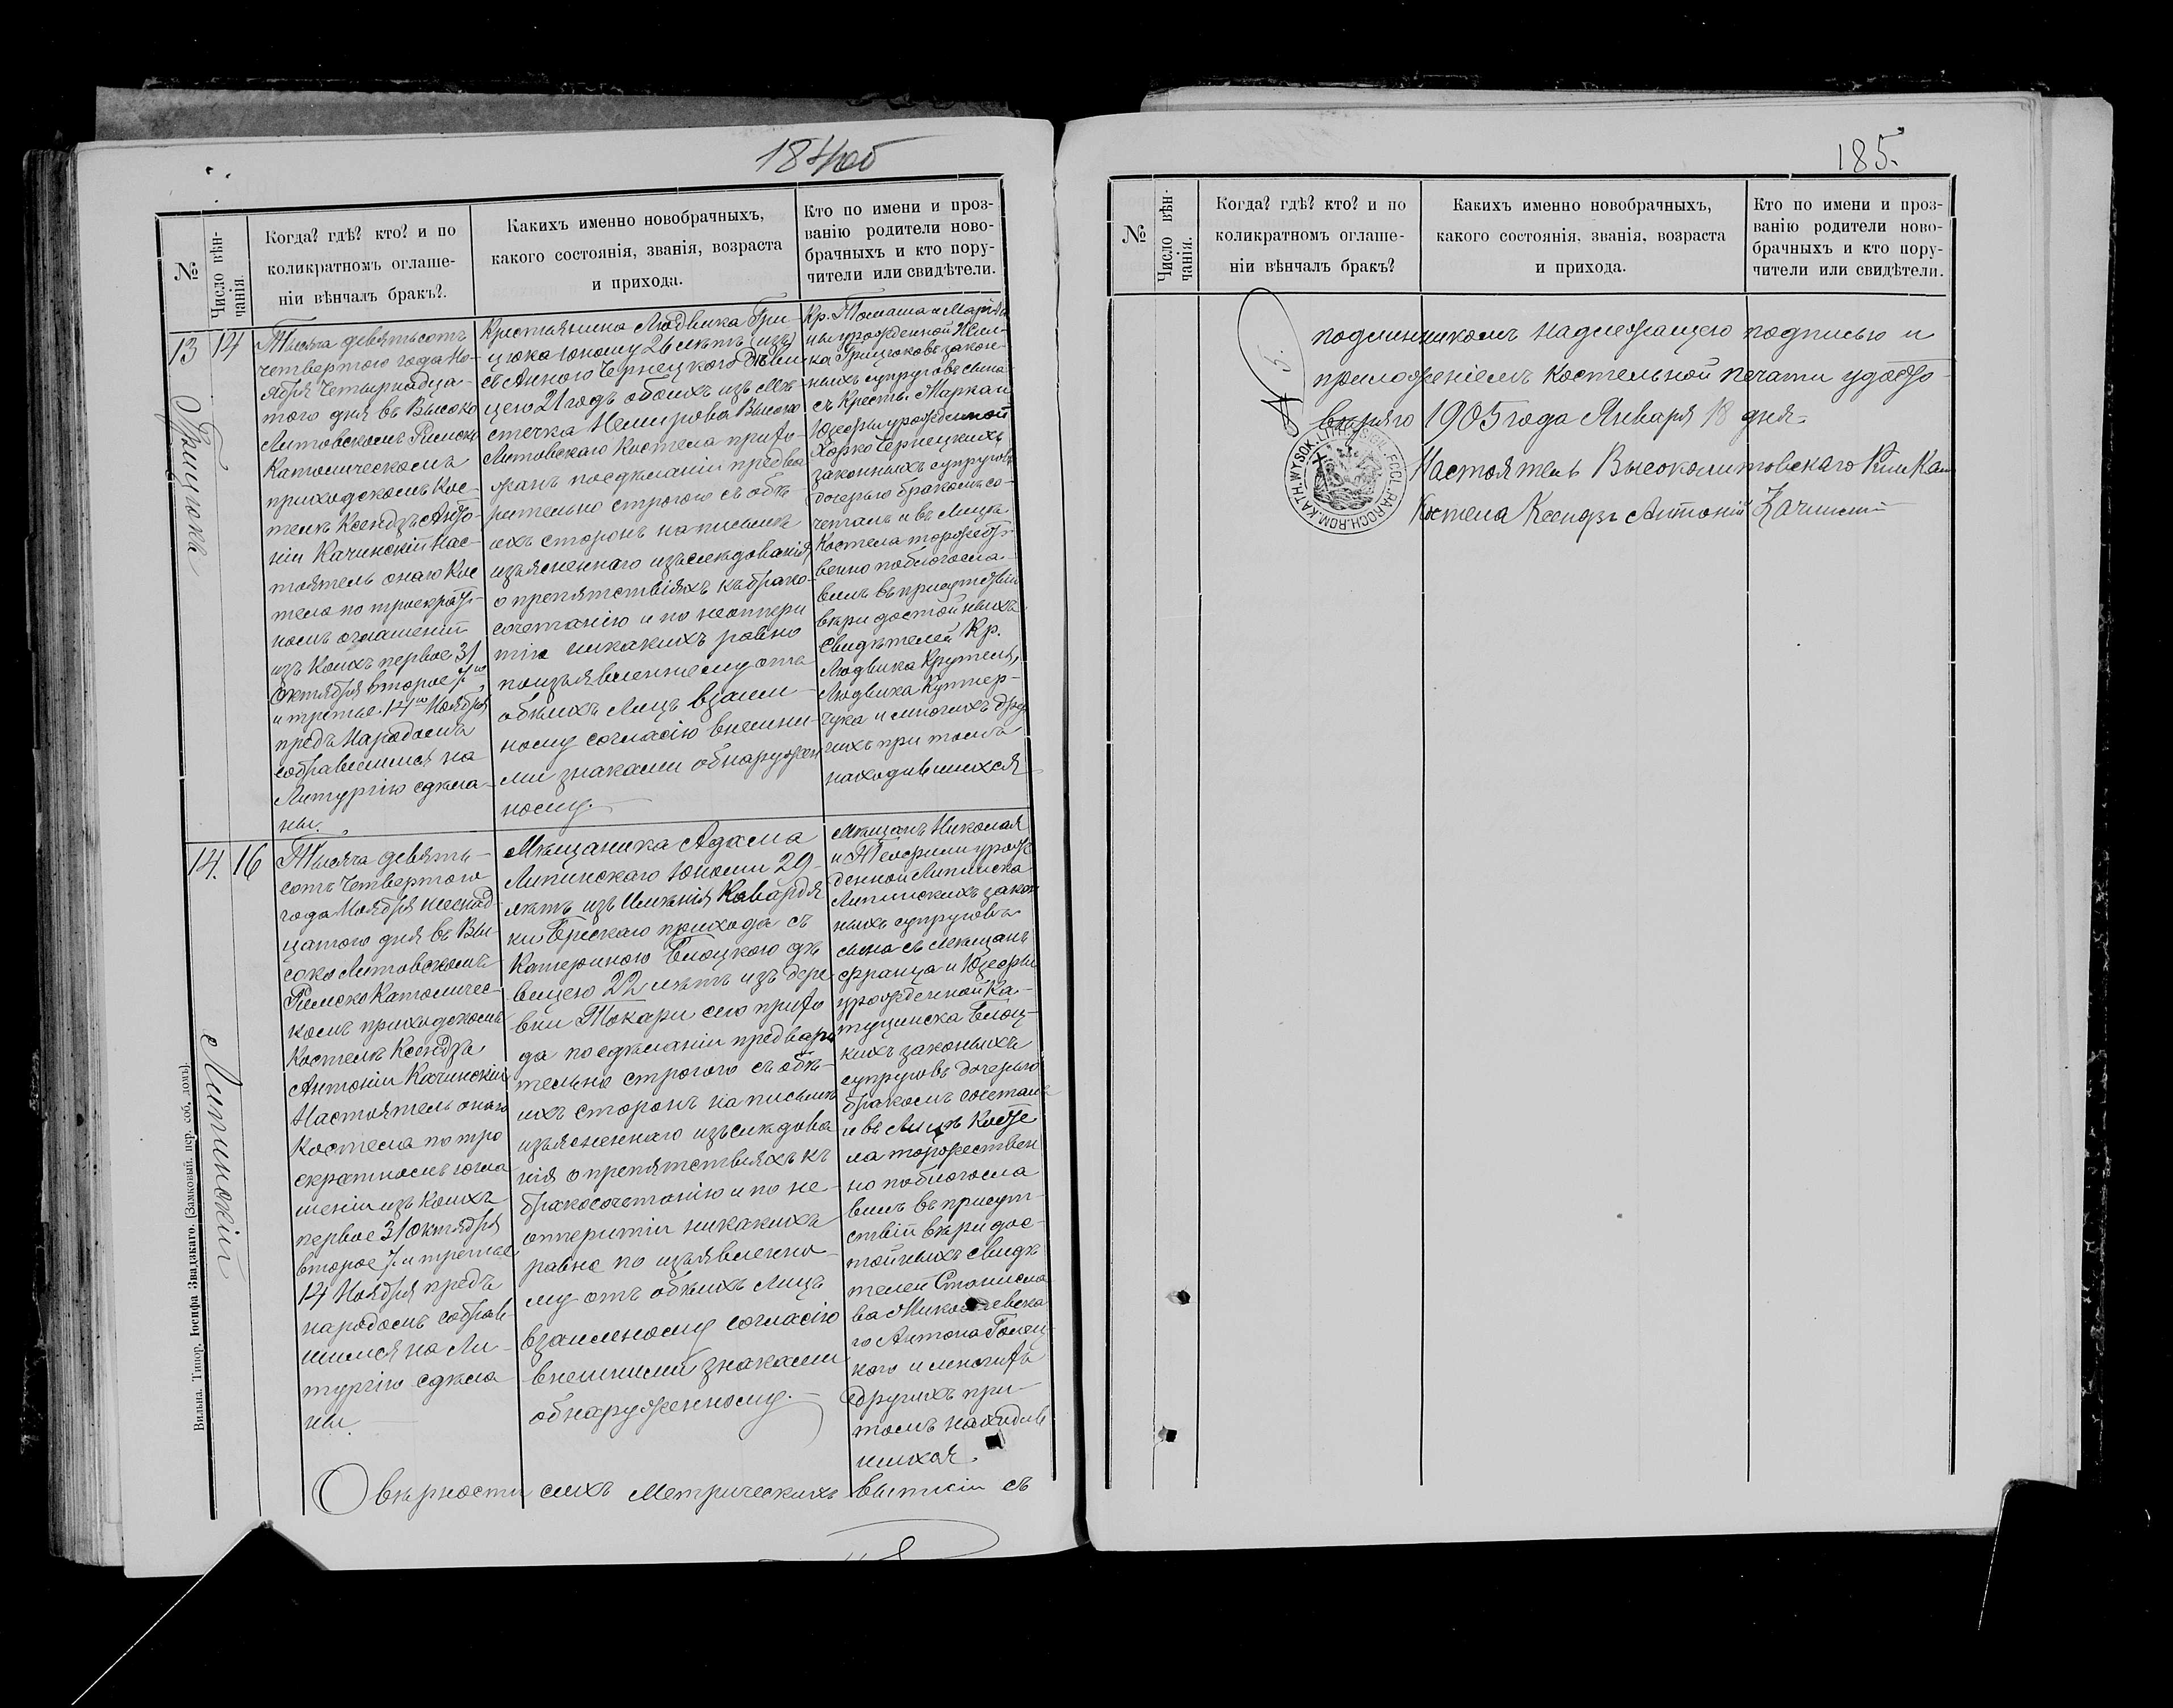 184об
№
Число вѣн-
чанія.
Когда? гдѣ? кто? и по
коликратномъ оглаше-
ніи вѣнчалъ бракъ?.
Какихъ именно новобрачныхъ,
какого состоянія, званія, возраста
и прихода.
Кто по имени и проз-
ванію родители ново-
брачныхъ и кто пору-
чители или свидѣтели.
13
14
Грицюкъ
Тысяча девятьсотъ
четвертого года Но-
ября четырнадца-
того дня въ Высоко
Литовскомъ Римско
Католическомъ
приходскомъ Кос-
телѣ Ксендзъ Анто-
ній Качинскій Нас-
тоятель онаго Кос
тела по троекрат-
номъ оглашеній
изъ коихъ первое 31
Октября второе 7го
и третье 14го Ноября
предъ Народомъ
собравшимся на
Литургію сдѣла-
ны.
Крестьянина Людвика Гри-
цюка юношу 26 лѣтъ (изъ)
съ Анною Чернецкого дѣви
цею 21 годъ обоихъ изъ Мѣ-
стечка Немирова Высоко
Литовскаго Костела прихо-
жанъ посдѣланіи предва
рительно строгого съ обѣ
ихъ сторонъ на письмѣ
изъясненнаго изъслѣдованія
о препятствіяхъ къ брако-
сочетанію и по неоткры
тію никакихъ равно
поизъявленному отъ
обѣихъ Лицъ взаим-
ному согласію внѣшни-
ми знаками обнаружен
ному.
Кр. Томаша и Маріян
ны урожденной
Грицюковъ закон-
ныхъ супруговъ сына
съ Крест. Марка и
Юзефы урожденной
Хорко Чернецкихъ
законныхъ супруговъ
дочерью бракомъ со-
четалъ и въ Лицѣ
Костела торжест-
венно поблагосла-
вилъ въ присутствіи
вѣри достойныхъ
свидѣтелей Кр.
Людвика Крутеля,
Людвика Куннер-
чука и многихъ дру
гихъ при томъ
находившихся
14.
16
Липинскій
Тысяча девять-
сотъ четвертого
года Ноября шеснад-
цатого дня въ Вы-
соко Литовскомъ
Римско Католичес-
комъ приходскомъ
Костелѣ Ксендзъ
Антоніи Качинскій
Настоятель онаго
Костела по тро
екратномъ огла
шеніи изъ коихъ
первое 31 Октября
второе 7 и третье
14 Ноября предъ
народомъ собрав
шимся на Ли-
тургію сдѣла
ны.
Мѣщанина Адама
Липинскаго юношу 29
лѣтъ изъ имѣнія Кавардя
ки Брескаго прихода съ
Катериною Блоцкого дѣ
вицею 22 лѣтъ изъ дере
вни Токари сего прихо
да по сдѣланіи предвари
тельно строгого съ обѣ-
ихъ сторонъ на письмѣ
изъясненнаго изъслѣдова
нія о препятствіяхъ къ
бракосочетанію и по не-
открытіи никакихъ
равно по изъявленно-
му отъ обѣихъ Лицъ
взаимному согласію
внѣшними знаками
обнаруженному.
Мѣщанъ Николая
и Теофили урож
денной Липинска
Липинскихъ закон
ныхъ супруговъ
сына съ мѣщанъ
Франца и Юзефы
урожденной Ка-
тущинска Блоц-
кихъ законныхъ
супруговъ дочерью
бракомъ сочеталъ
и въ Лицѣ Косте
ла торжествен
но поблагосла
вилъ въ присут-
ствіи вѣри дос-
тойныхъ свидѣ
телей Станисла
ва
го Антона
кого и многихъ
другихъ при-
томъ находив
шихся.
О вѣрности сихъ Метрическихъ выписи съ
Вильна. Типор. Іосифа Звадзкаго. (Замковый. пер. соб. домъ).
185.
№
Число вѣн-
чанія.
Когда? гдѣ? кто? и по
коликратномъ оглаше-
ніи вѣнчалъ бракъ?
Какихъ именно новобрачныхъ,
какого состоянія, званія, возраста
и прихода.
Кто по имени и проз-
ванію родители ново-
брачныхъ и кто пору-
чители или свидѣтели.
подлинникомъ надлежащею подписью и
приложеніемъ костельной печати удосто-
вѣряю 1905 года Января 18 дня
Настоятель Высоколитовскаго Рим Кат
Костела Ксендзъ Антоній Качинскій